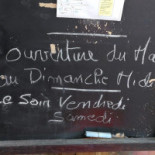 Ouverture du Ma
au Dimanche Midi
Le Soir Vendredi
Samedi